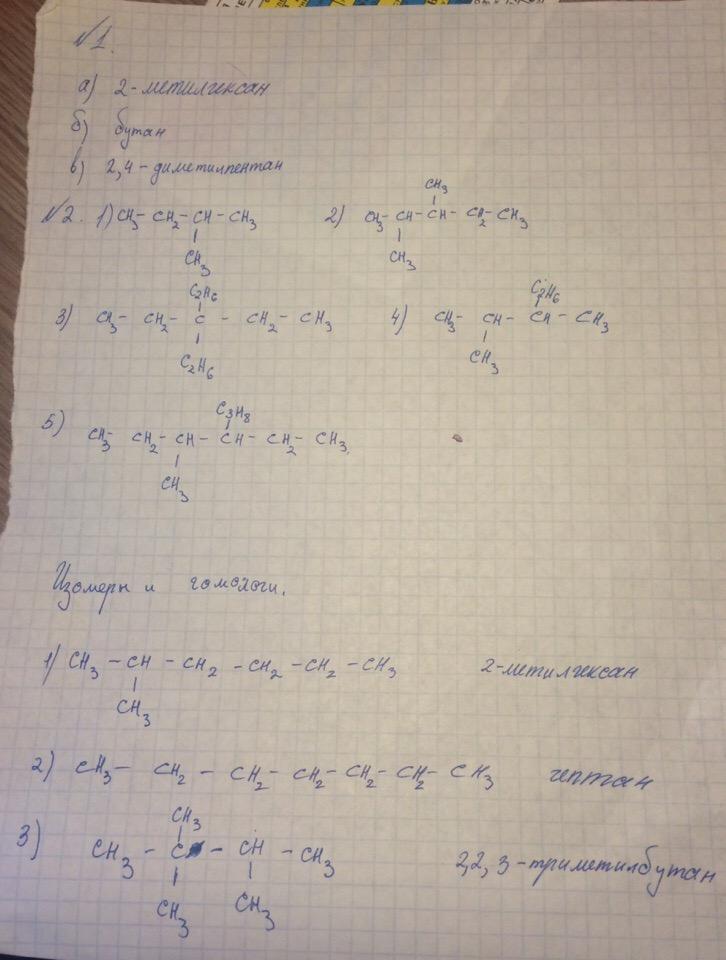 №1.
а) 2-метилгексан
б) бутан
в) 2,4-диметилпентан
№2. 1) CH3- CH2- CH- CH3
CH3
2) CH3- CH- CH- CH2- CH3
CH3
CH3
3) CH3- CH2- C - CH2- CH3
C2H6
C2H6
4) CH3- CH- CH- CH3
C2H6
CH3
5) CH3- CH2- CH- CH- CH2- CH3,
C3H8
CH3
Изомеры и гомологи.
1) CH3 - CH - CH2 - CH2 - CH2 - CH3 2-метилгексан
CH3
2) CH3- CH2- CH2- CH2- CH2- CH2- CH3 гептан
CH3
3) CH3- C - CH - CH3 2,2,3-триметилбутан
CH3 CH3